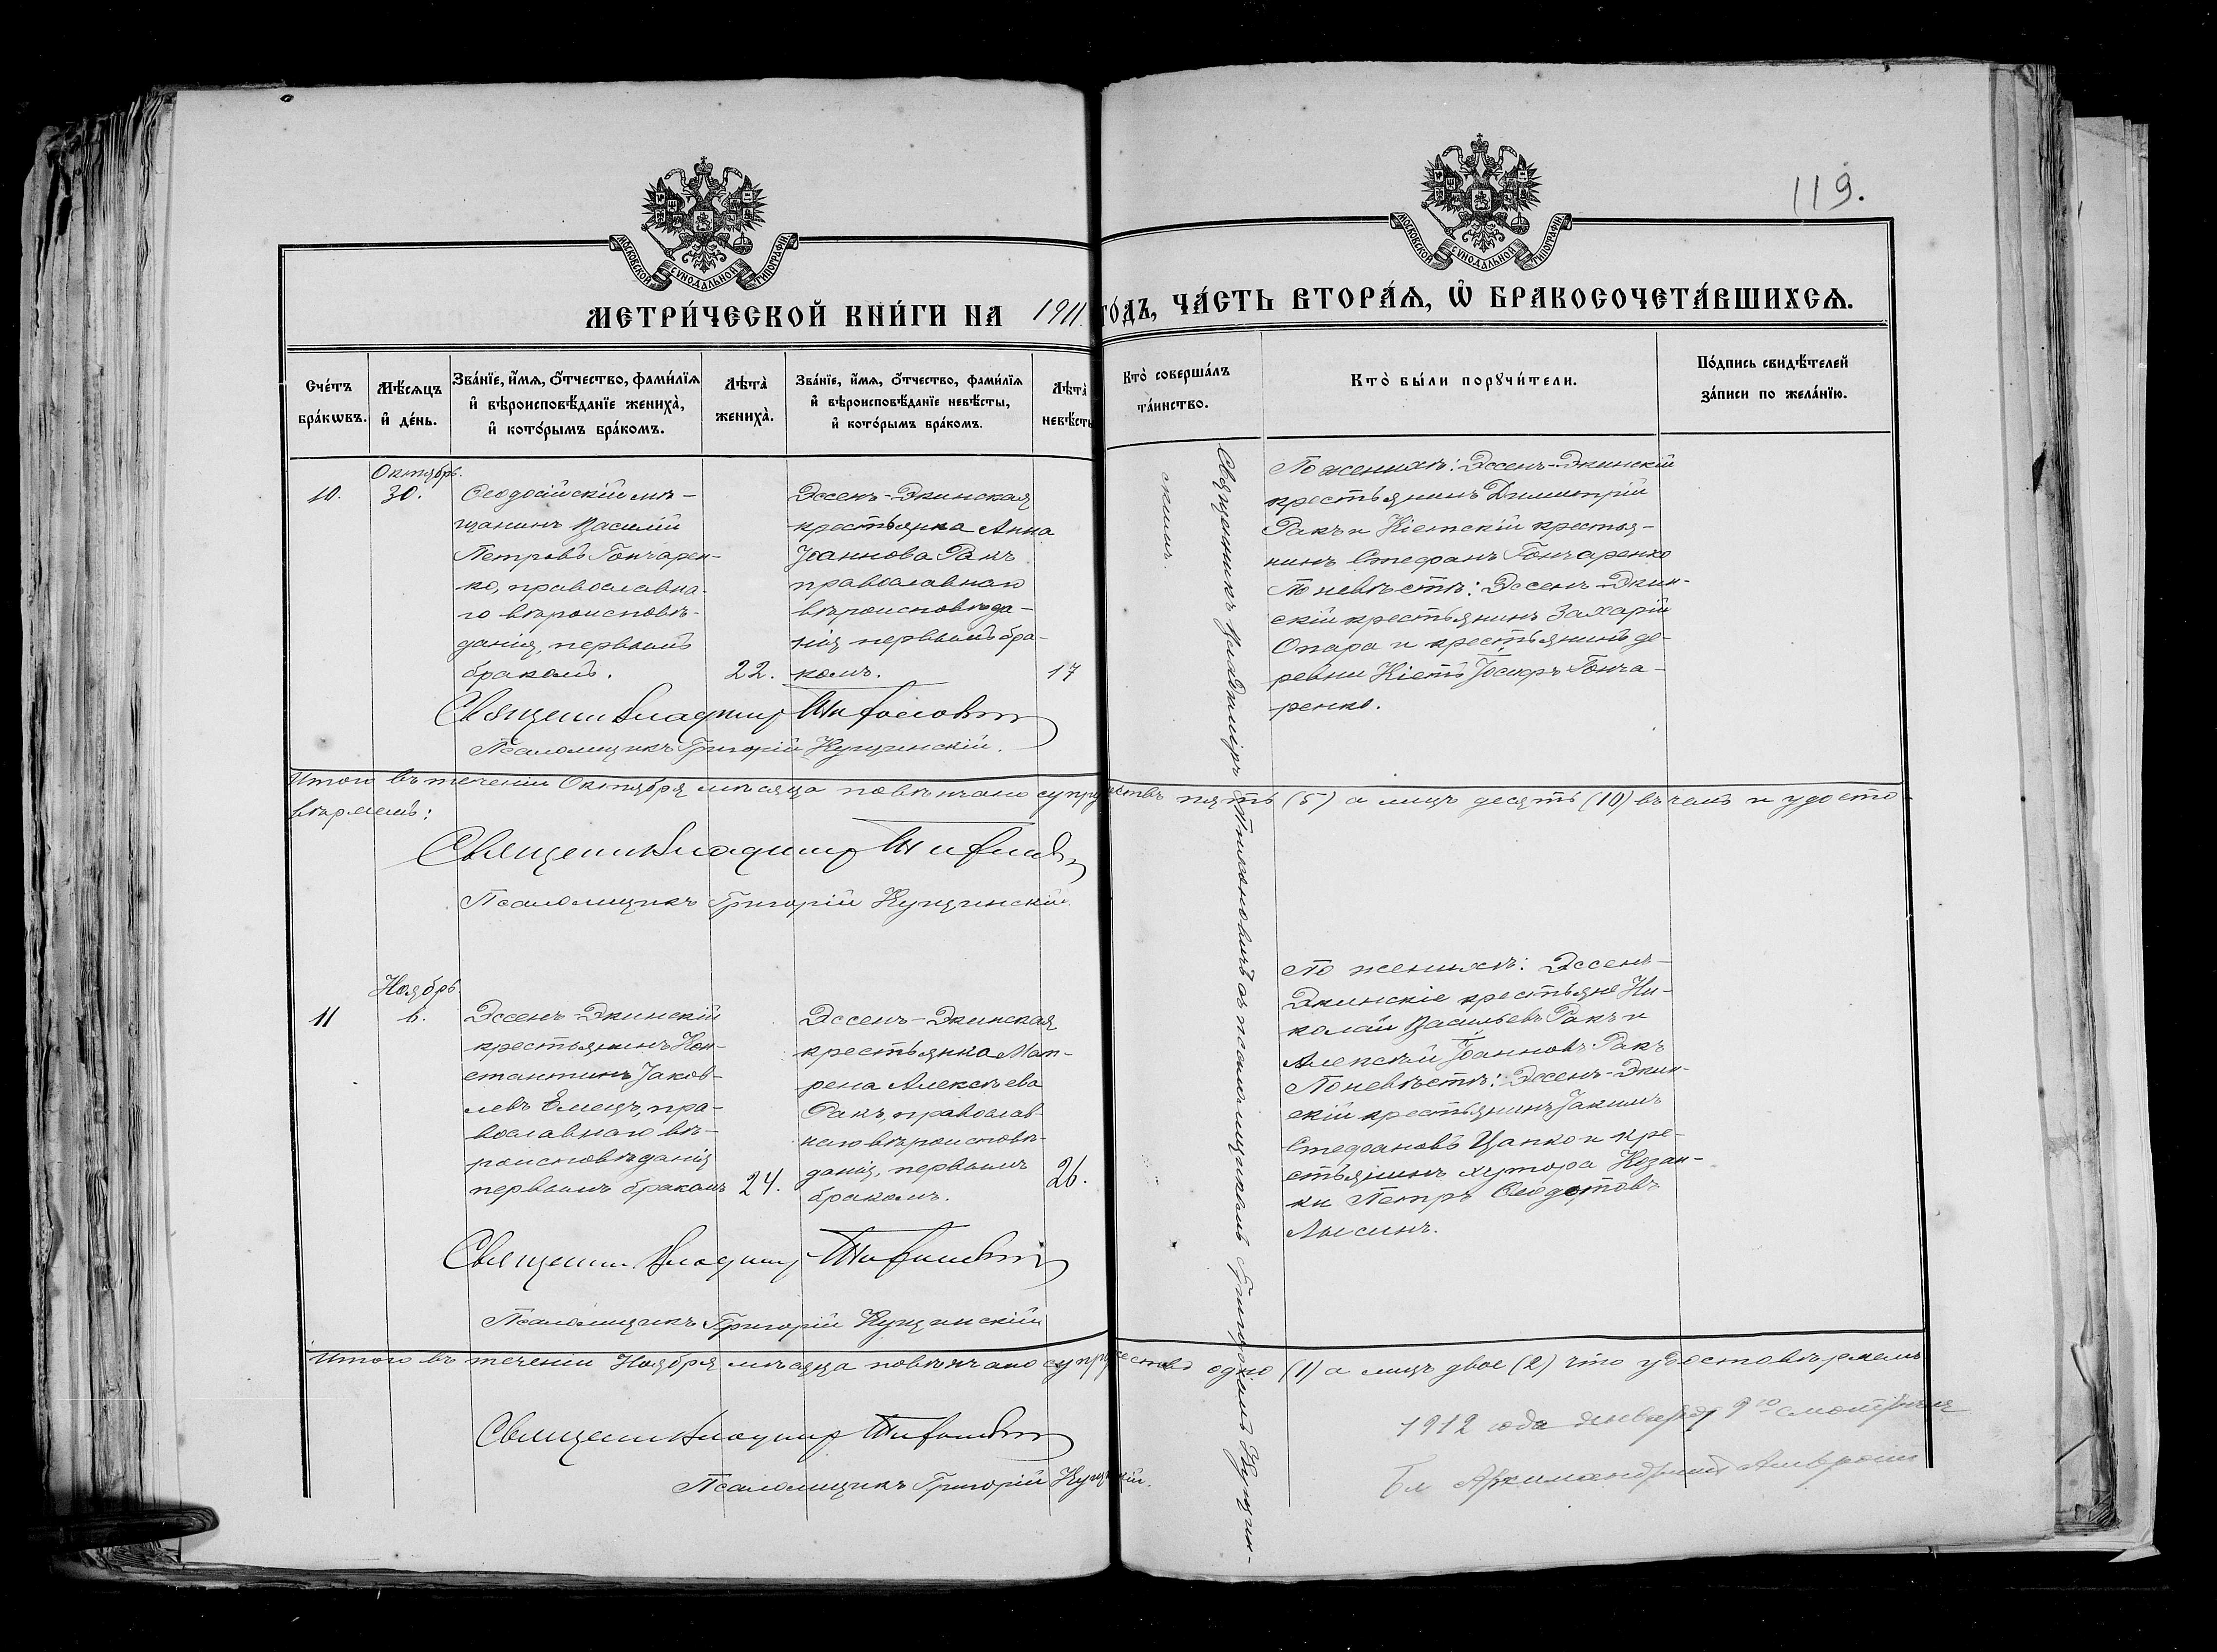 119.
МОСКОВСКОЙ СѴНОДАЛЬНОЙ ТИПОГРАФІИ
МОСКОВСКОЙ СѴНОДАЛЬНОЙ ТИПОГРАФІИ
МЕТРИ́ЧЕСКОЙ КНИ́ГИ НА 1911 ГО́ДЪ, ЧА́СТЬ ВТОРА́Ѧ, Ѡ҆ БРАКОСОЧЕТА́ВШИХСѦ.
Сче́тъ
бра́кѡвъ.
Мѣ́сѧцъ
и҆ де́нь.
Зва́нїе, и҆́мѧ, ѻ҆́тчество, фамилїѧ
и҆ вѣроисповѣ́данїе жениха̀,
и҆ кото́рымъ бра́комъ.
Лѣта̀
жениха̀.
Зва́нїе, и҆́мѧ, ѻ҆́тчество, фамилїѧ
и҆ вѣроисповѣ́данїе невѣ́сты,
и҆ кото́рымъ бра́комъ.
Лѣта̀
невѣ́сты
Кто̀ соверша́лъ
та́инство.
Кто̀ бы́ли порꙋчи́тели.
По́дпись свидѣ́телей
за́писи по жела́нїю.
10.
Октябрь.
30.
Ѳеодосійскій мѣ-
щанинъ Василій
Петровъ Гончарен-
ко, православна-
го вѣроисповѣ-
данія, первымъ
бракомъ.
22.
Эссенъ-Экинская
крестьянка Анна
Іоаннова Ракъ
православнаго
вѣроисповѣда-
нія первымъ бра-
комъ.
17
Священникъ Владиміръ Тихоновичъ съ псаломщикомъ Григоріемъ Кущин-
скимъ.
По женихѣ: Эссенъ-Экинскій
крестьянинъ Димитрій
Ракъ и Кіетскій крестья-
нинъ Стефанъ Гончаренко
По невѣстѣ: Эссенъ-Экин-
скій крестьянинъ Захарій
Опара и крестьянинъ де-
ревни Кіетъ Іосифъ Гонча-
ренко.
Священникъ Владиміръ
Псаломщикъ Григорій Кущинскій.
Итого въ теченіи Октября мѣсяца повѣнчано супружествъ пять (5) а лицъ десять (10) въ чемъ и удосто-
вѣряемъ:
Священникъ Владиміръ
Псаломщикъ Григорій Кущинскій.
11
Ноябрь
6.
Эссенъ-Экинскій
крестьянинъ Кон-
стантинъ Іаков-
левъ Емецъ, пра-
вославнаго вѣ-
роисповѣданія
первымъ бракомъ
24.
Эссенъ-Экинская
крестьянка Мат-
рена Алексѣева
Ракъ, православ-
наго вѣроисповѣ-
данія, первымъ
бракомъ.
26.
По женихѣ: Эссенъ-
Экинскіе крестьяне Ни-
колай Васильевъ Ракъ и
Алексѣй Іоанновъ Ракъ
По невѣстѣ: Эссенъ-Экин-
скій крестьянинъ Іакимъ
Стефановъ Цапко и кре-
стьянинъ хутора Козан-
ки Петръ Ѳеодотовъ
Лысинъ.
Священникъ Владиміръ
Псаломщикъ Григорій Кущинскій
Итого въ теченіи Ноября мѣсяца повѣнчано супружество одно (1) а лицъ двое (2) что удостовѣряемъ
Священникъ Владиміръ
Псаломщикъ Григорій Кущинскій.
1912 года января 9го смотрѣлъ
Бл Архимандритъ Амвросій